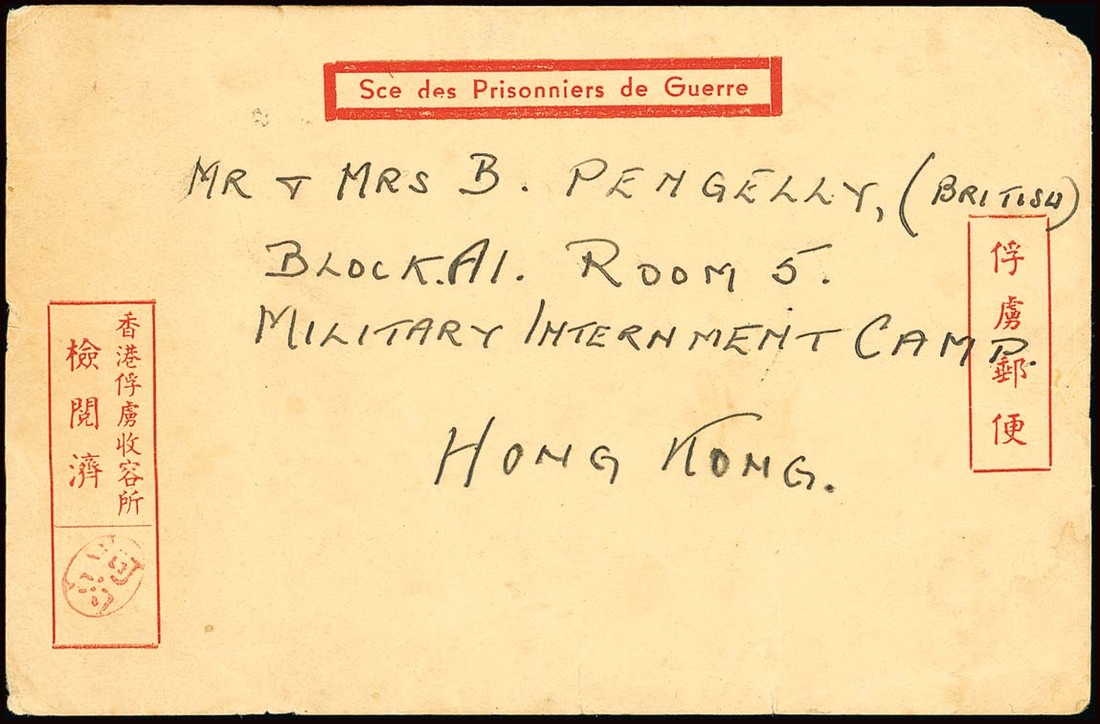 Sce des Prisonniers de Guerre
MR & MRS B. PENGELLY, (BRITISH)
BLOCK.A1. ROOM 5.
MILITARY INTERNMENT CAMP.
HONG KONG.
俘虜郵便
香港俘虜收容所
檢閲濟